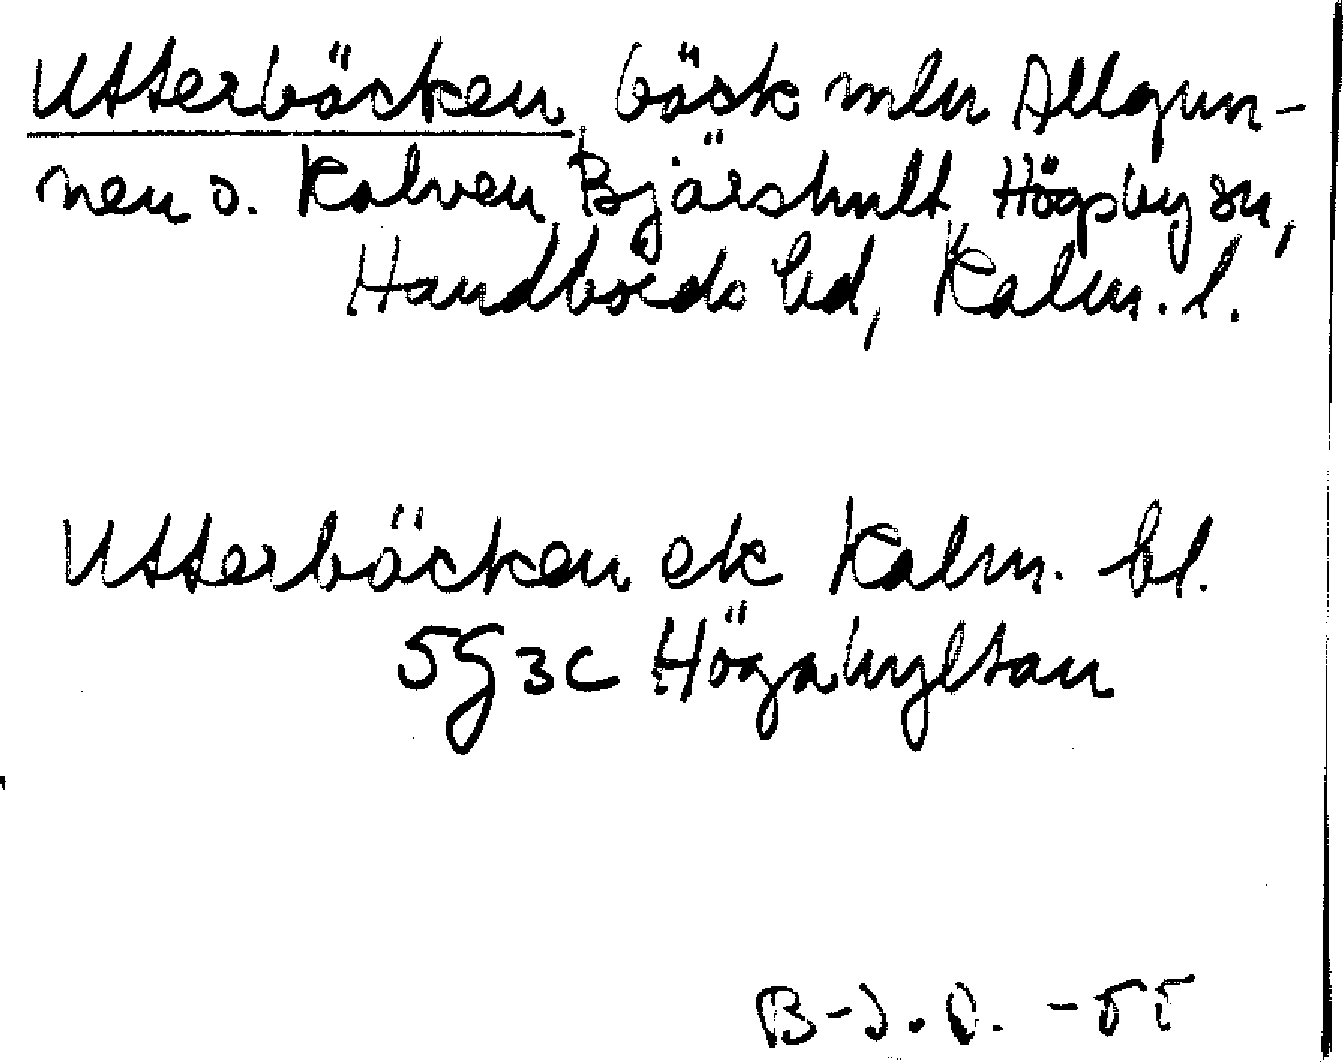 Utterbäcken, bäck mln Allgun-
nen o. Kalven, Bjärshult, Högsby sn,
Handbörds hd, Kalm. l.
Utterbäcken ek Kalm. bl.
5G 3c Högahyltan
B-J.O. -55